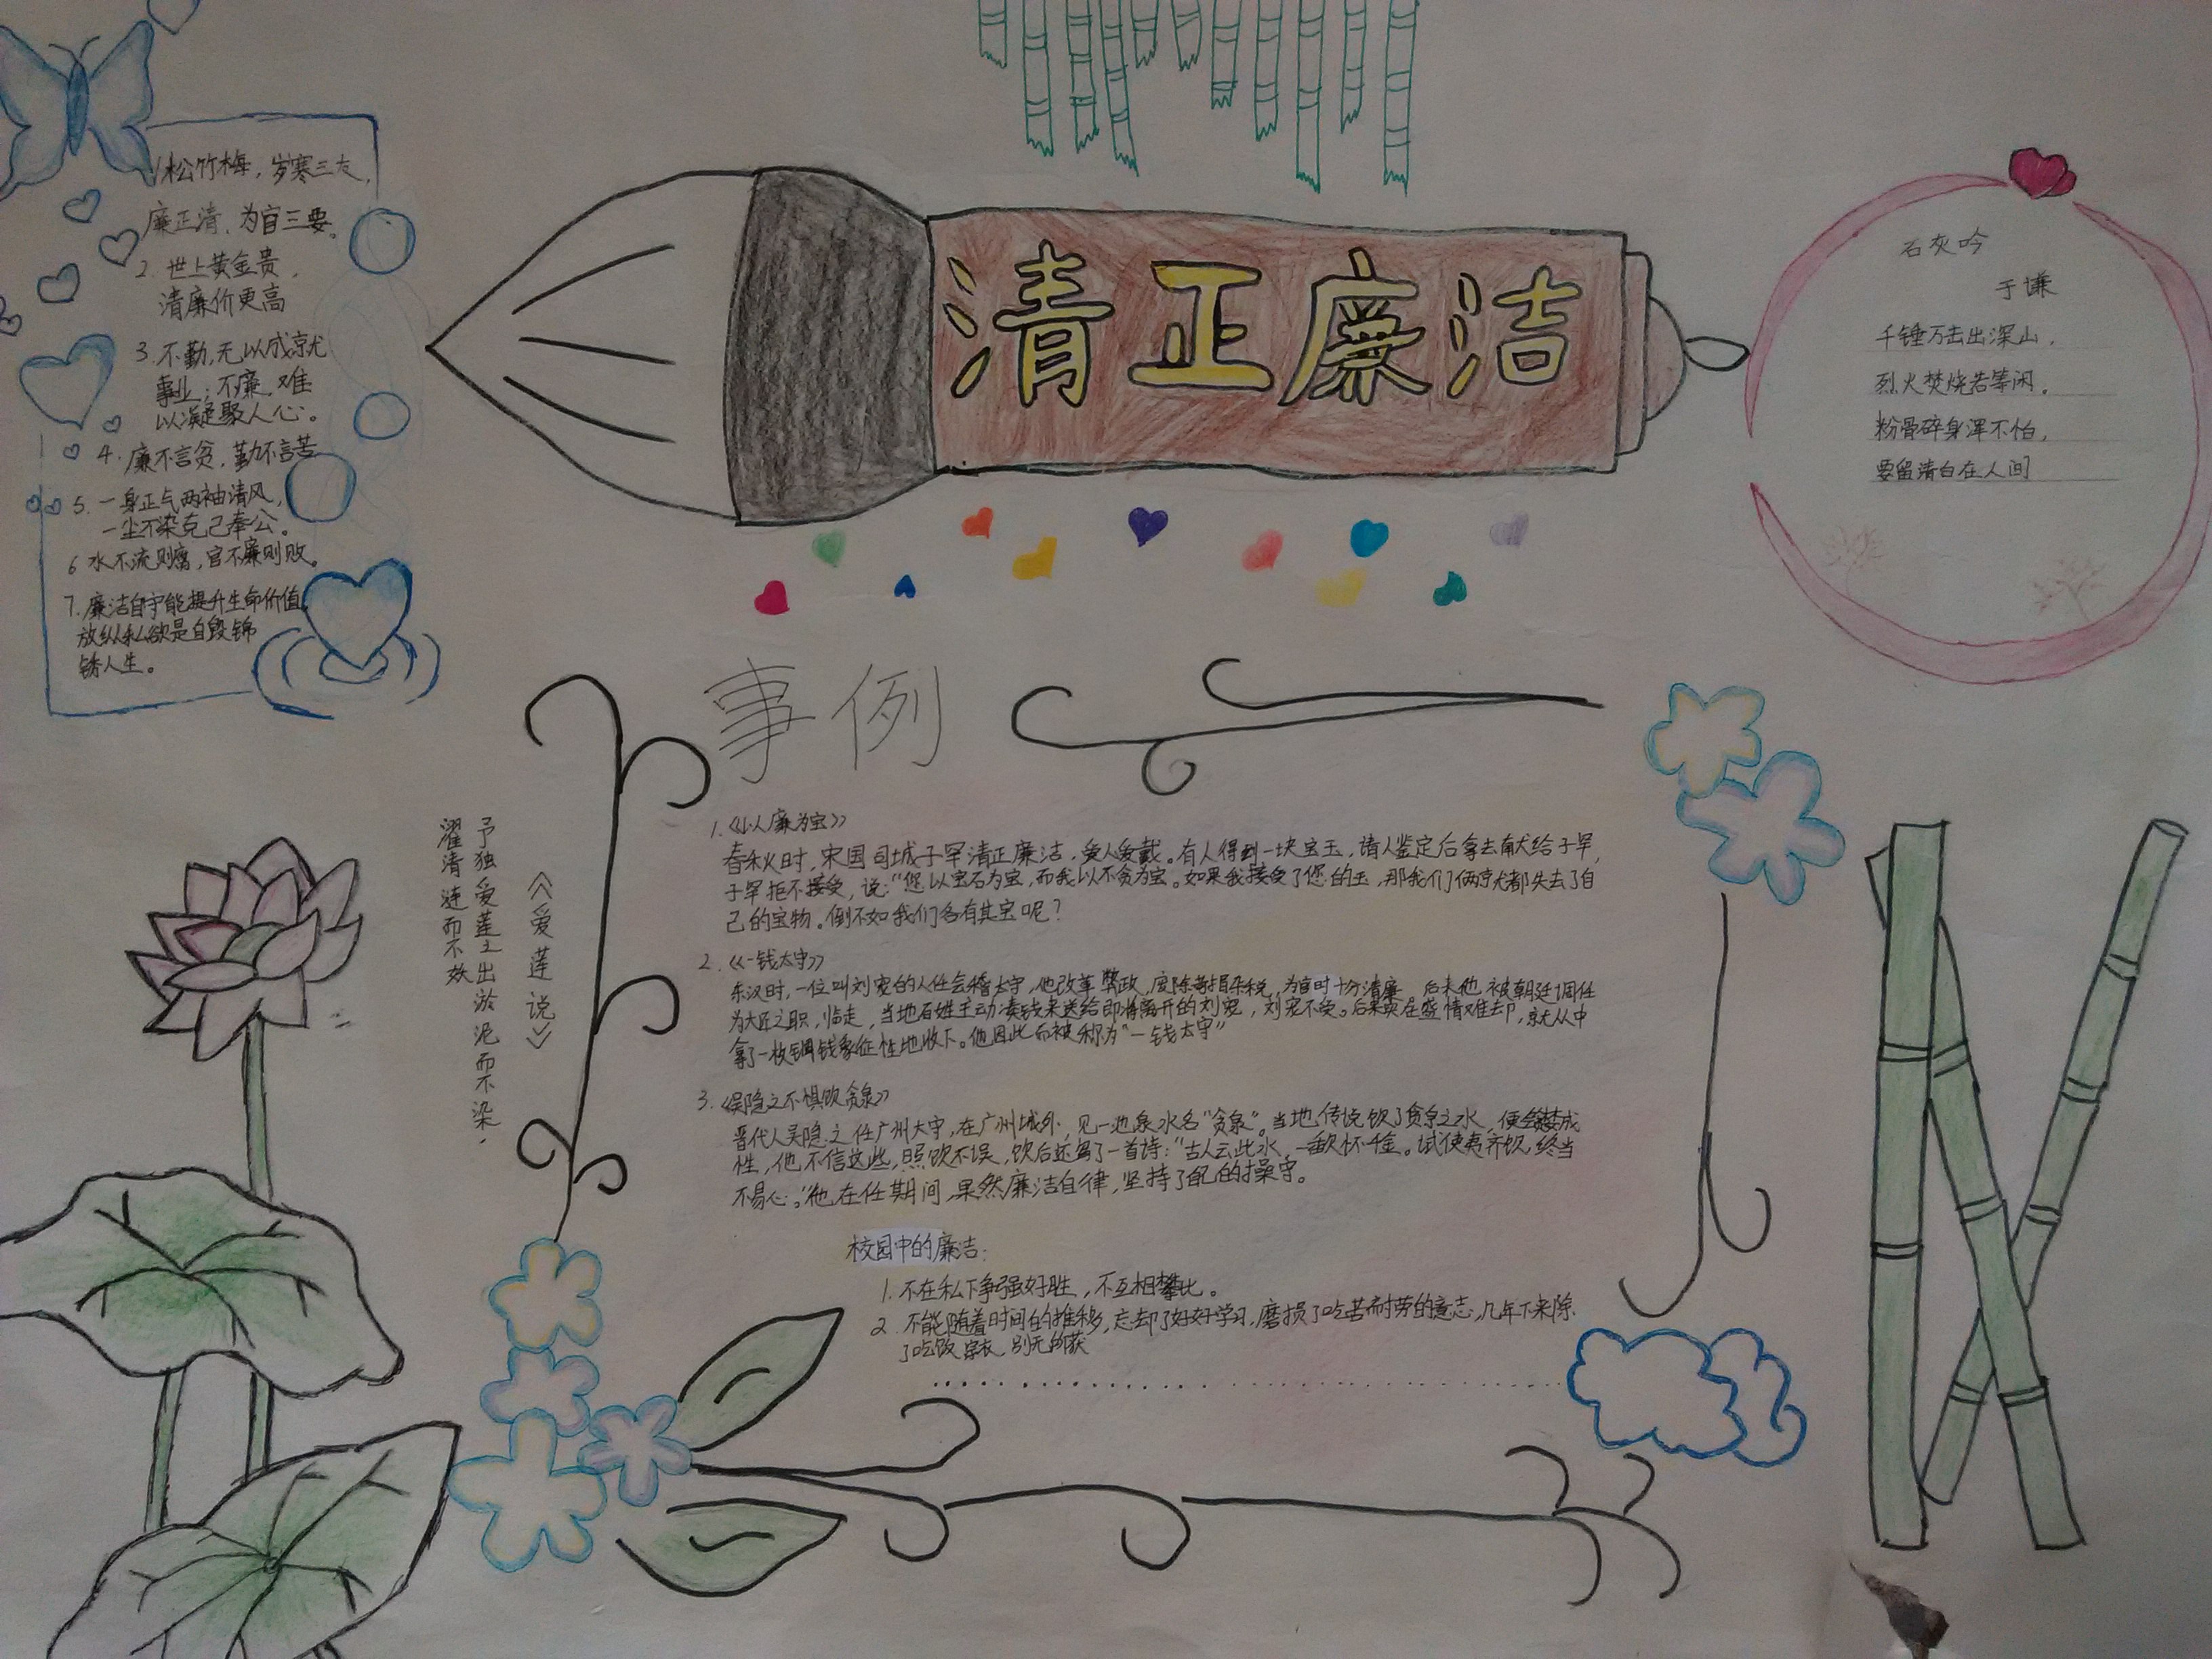 清正廉洁
1松竹梅，岁寒三友，
廉正清，为官三要。
2. 世上黄金贵，
清廉价更高
3. 不勤，无以成就
事业；不廉，难
以凝聚人心。
4. 廉不言贫，勤不言苦
5. 一身正气两袖清风，
一尘不染克己奉公。
6 水不流则腐，官不廉则败。
7. 廉洁自守能提升生命价值
放纵私欲是自毁锦
锈人生。
石灰吟
于谦
千锤万击出深山，
烈火焚烧若等闲。
粉骨碎身浑不怕，
要留清白在人间
《爱莲说》
予独爱莲之出淤泥而不染，
濯清涟而不妖
事例
1.《以廉为宝》
春秋时，宋国司城子罕清正廉洁，受人爱戴。有人得到一块宝玉，请人鉴定后拿去献给子罕，
子罕拒不接受，说："您以宝石为宝，而我以不贪为宝。如果我接受了您的玉，那我们俩就都失去了自
己的宝物。倒不如我们各有其宝呢？
2.《一钱太守》
东汉时，一位叫刘宠的人任会稽太守，他改革弊政，废除苛捐杂税，为官时十分清廉 后来他被朝廷调任
为大匠之职，临走，当地百姓主动凑钱来送给即将离开的刘宠，刘宠不受。后来实在盛情难却，就从中
拿了一枚铜钱象征性地收下。他因此而被称为"一钱太守"
3.《吴隐之不惧饮贪泉》
晋代人吴隐之任广州太守，在广州城外，见一池泉水名"贪泉"。当地传说饮了贪泉之水，便会婪成
性，他不信这些，照饮不误，饮后还写了一首诗："古人云此水，一歃怀千金。试使夷齐饮，终当
不易心。"他在任期间，果然廉洁自律，坚持了的操守。
校园中的廉洁：
1. 不在私下争强好胜，不互相攀比。
2. 不能随着时间的推移，忘却了好好学习，磨损了吃苦而耐劳的意志，几年下来除
了吃饭穿衣，别无所获